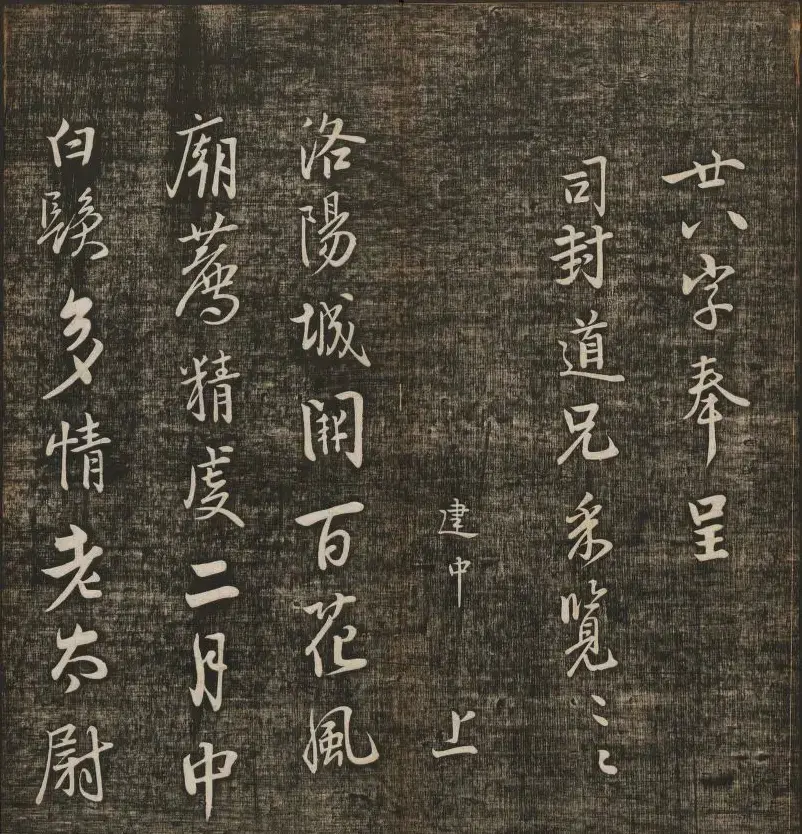 廿八字奉呈
司封道兄采覽〻〻
建中 上
洛陽城闕百花風
廟薦精虔二月中
白鬚多情老太尉